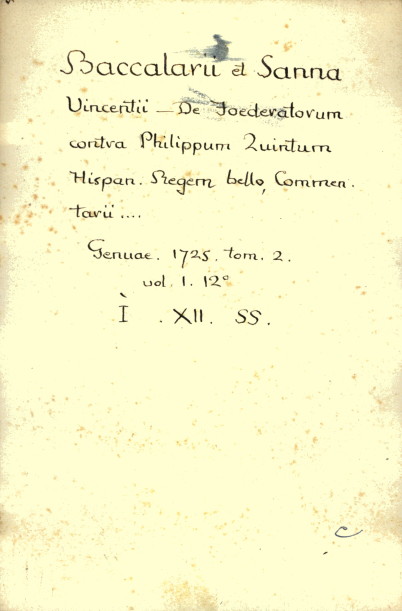 Baccalarii et Sanna
Vincentii - De Foederatorum
contra Philippum Quintum
Hispan. Regem bello, Commen.
tarii ....
Genuae. 1725. tom. 2.
vol. 1. 12°
Ì . XII. SS.
c